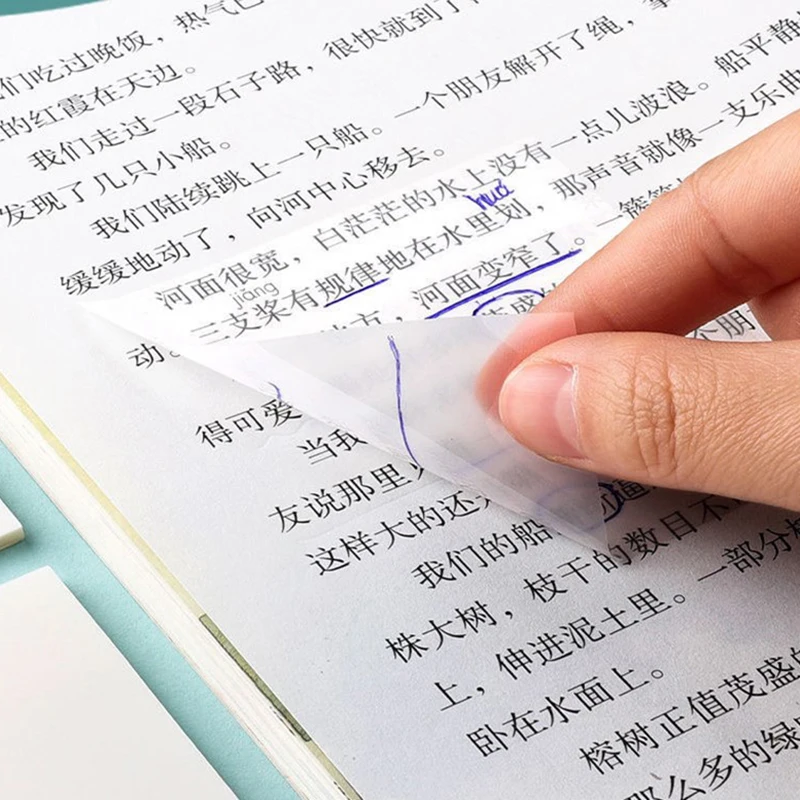 们吃过晚饭，热气
的红霞在天边。
我们走过一段石子路，很快就到了
发现了几只小船。
我们陆续跳上一只船。一个朋友解开了绳，
缓缓地动了，向河中心移去。
河面很宽，白茫茫的水上没有一点儿波浪。船平静
huá
jiāng
三支桨有规律地在水里划，那声音就像一支乐曲
动。 方，河面变窄了。一簇簇
得可爱
当我
友说那里 个朋
这样大的还
我们的船 逼
株大树，枝干的数目不
上，伸进泥土里。一部分
卧在水面上。
榕树正值茂盛的
那么多的绿